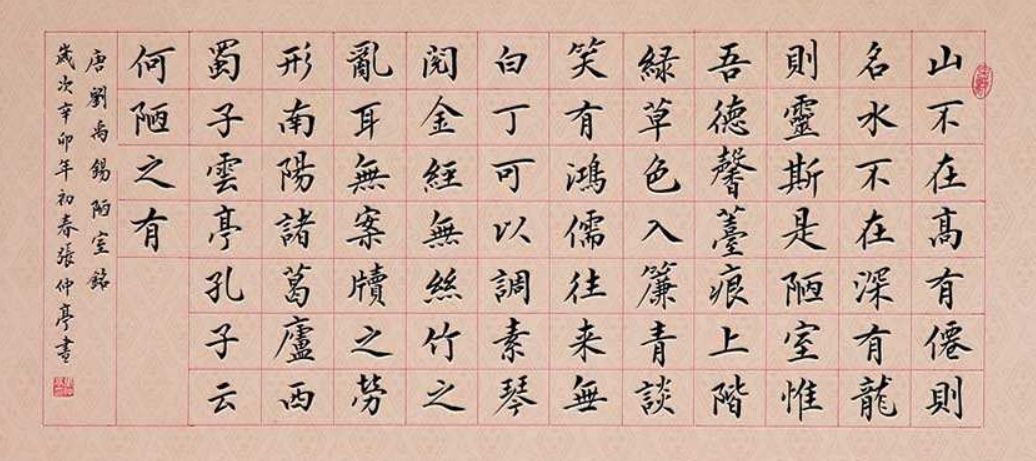 山不在髙有僊則
名水不在深有龍
則靈斯是陋室惟
吾德馨薹痕上階
緑草色入簾青談
笑有鴻儒往来無
白丁可以調素琴
閲金經無絲竹之
亂耳無案牘之勞
形南陽諸葛廬西
蜀子雲亭孔子云
何陋之有
唐劉禹錫陋室銘
歲次辛卯年初春張仲亭書